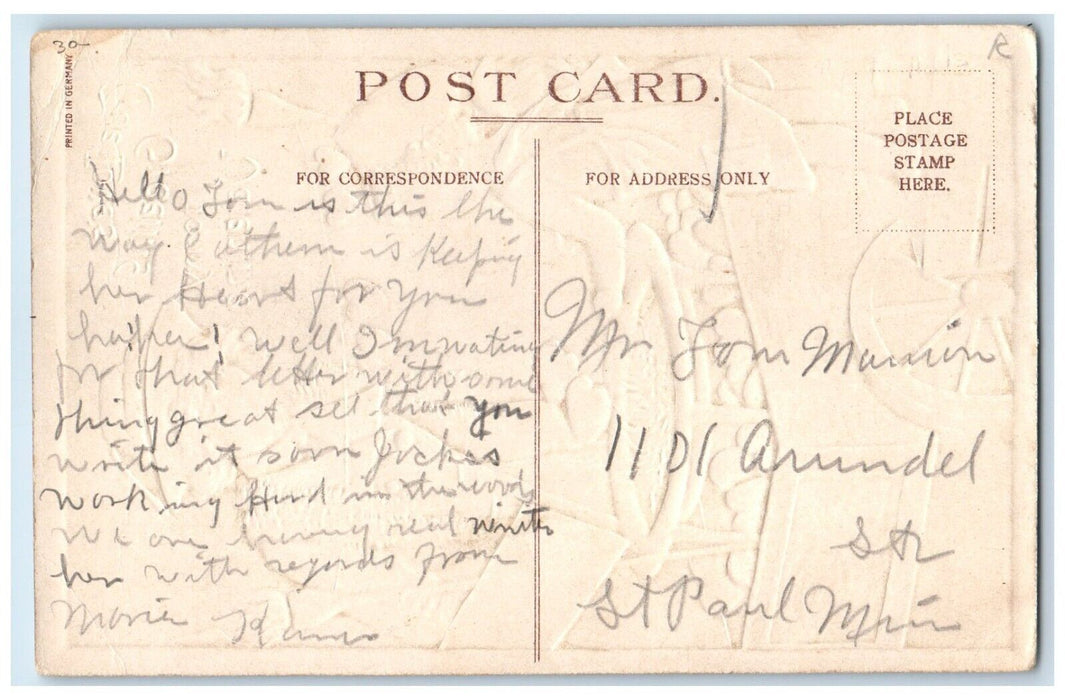 30-
PRINTED IN GERMANY
R
POST CARD.
PLACE
POSTAGE
STAMP
HERE.
FOR CORRESPONDENCE
FOR ADDRESS ONLY
Hello Tom is this the
way is keeping
her Heart for you
well Im wating
for that letter with some
thing great set that you
write it soon
working Hard in the woods
We are having real wintr
her with regards from
Marie
Mr Tom Mannion
1101 Arundel
Str
St Paul Min